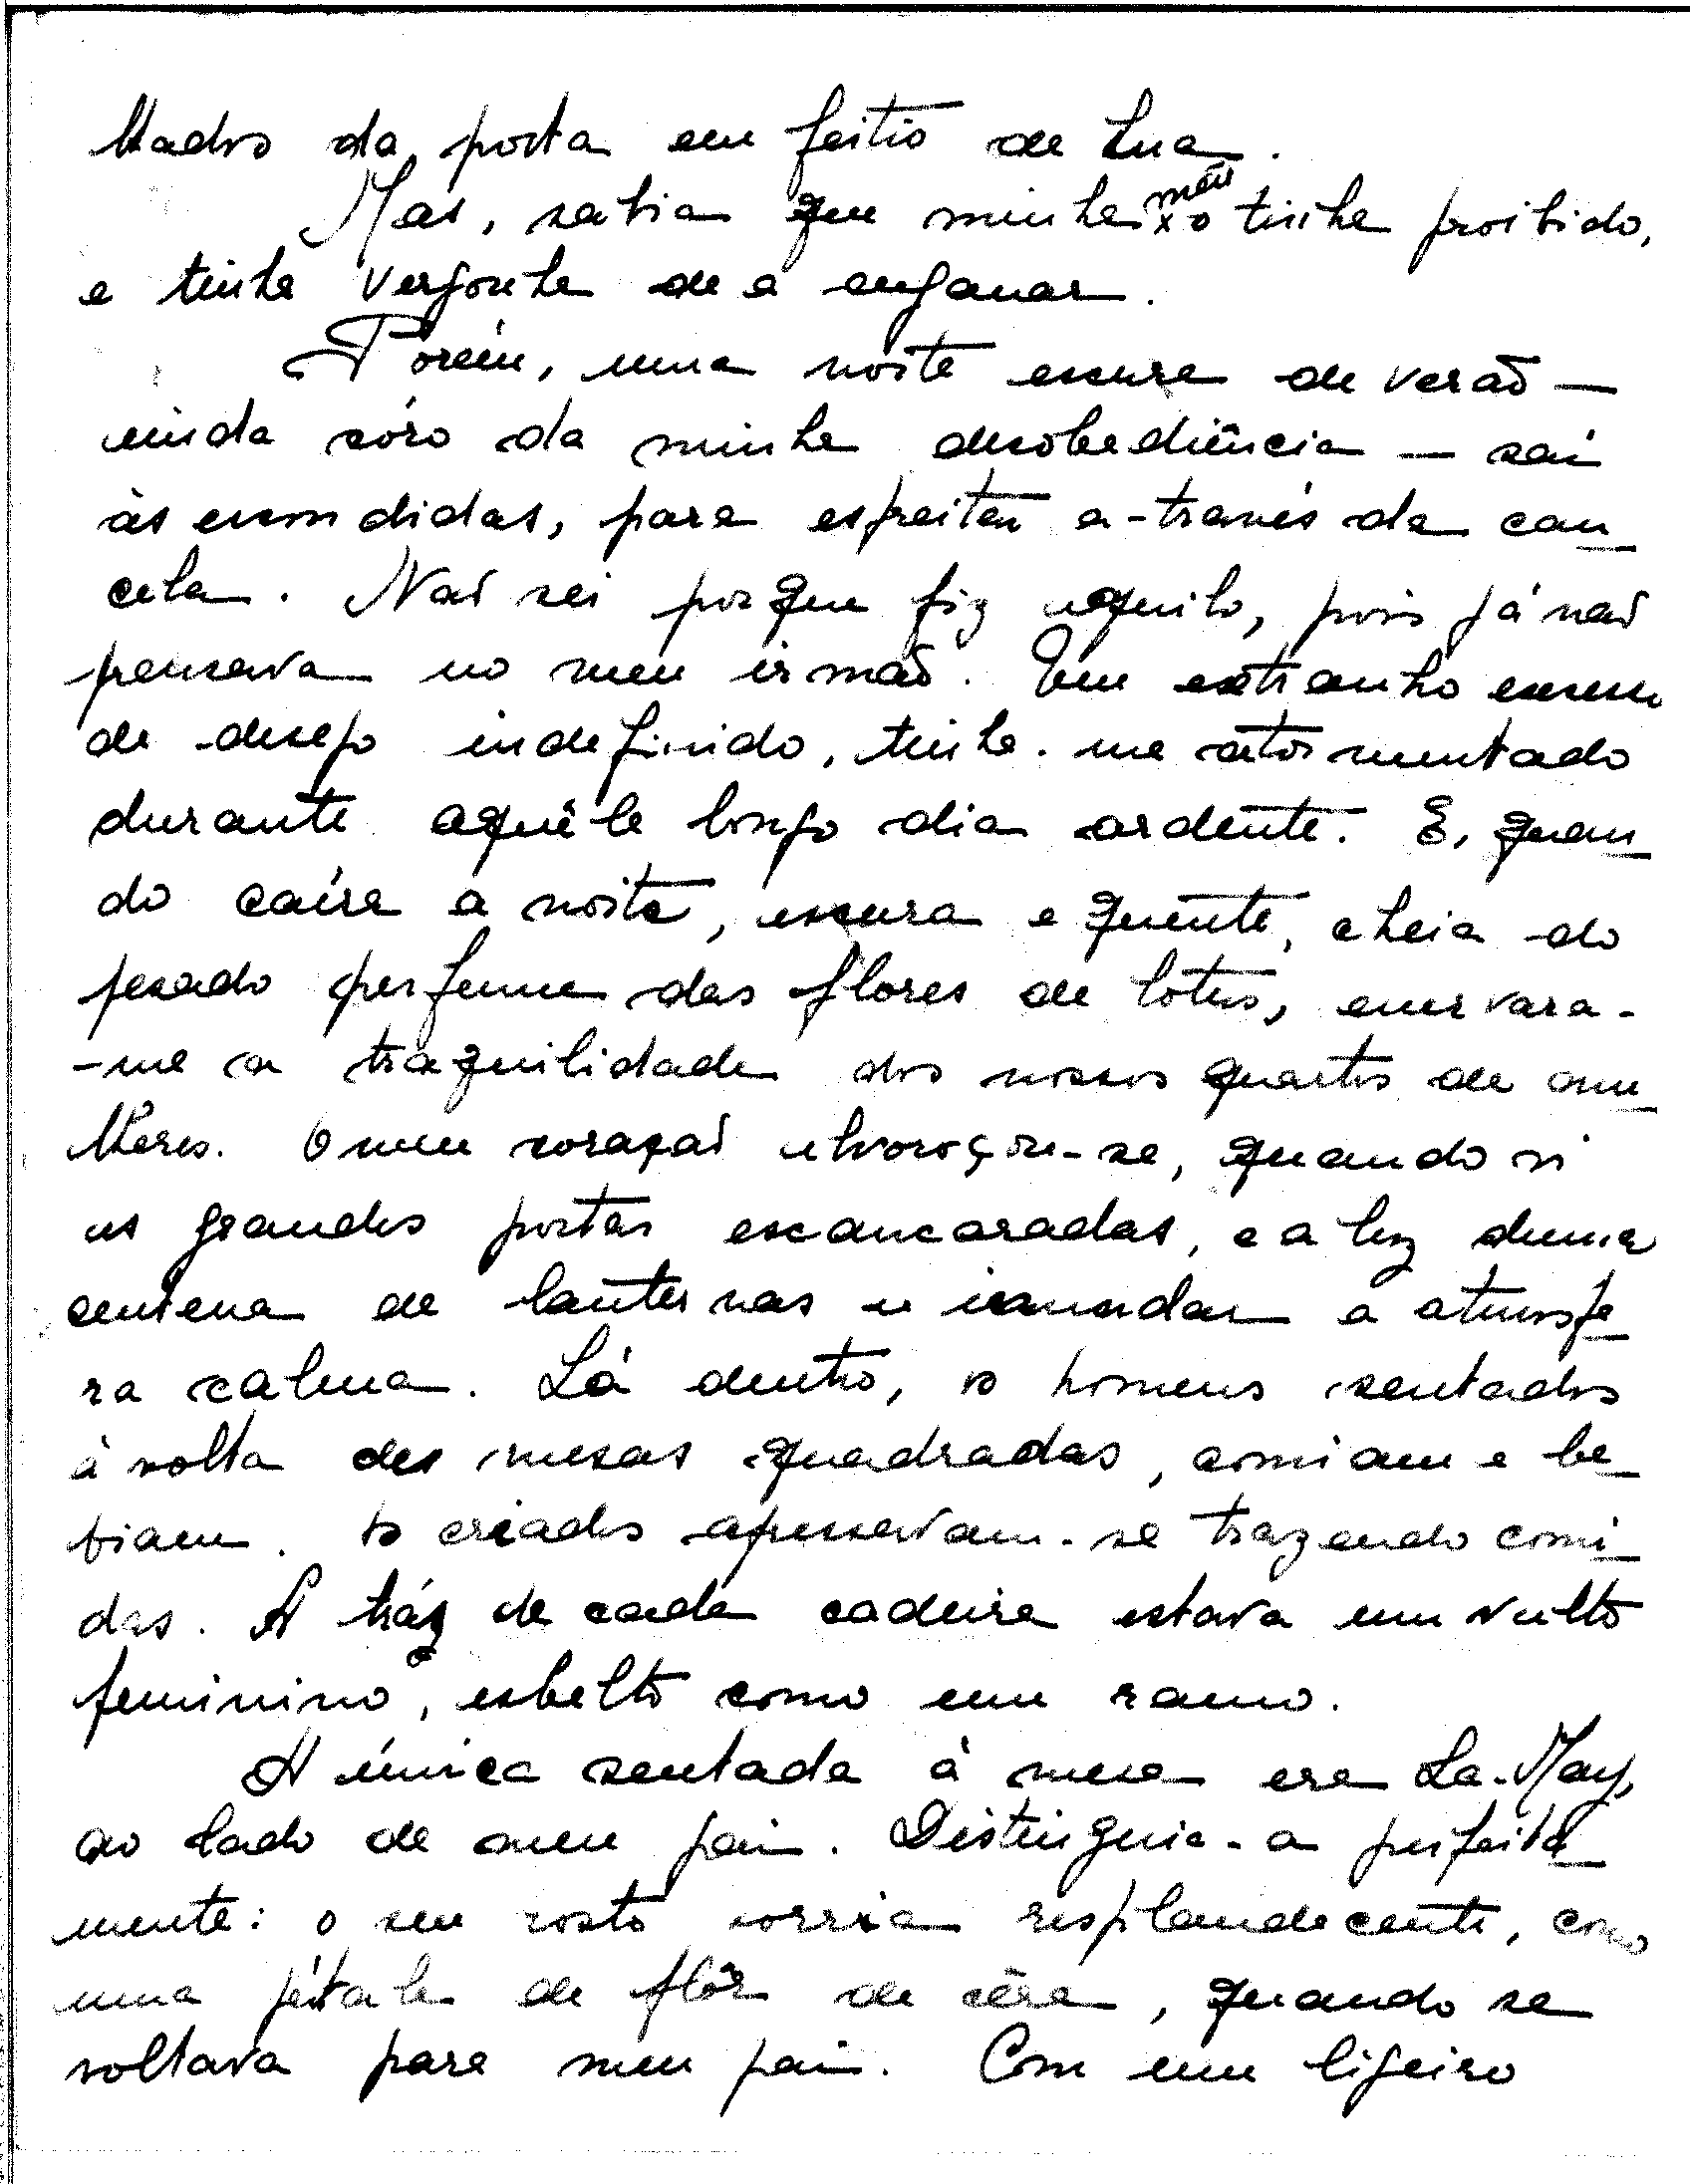 lhados da porta em feitio de lua.
Mas, sabia que minha mãi o tinha proibido,
e tinha vergonha de a enganar.
Porém, uma noite escura de verão —
inda córo da minha desobediência — saí
às escondidas, para espreitar a-través da can_
cela. Não sei porque fiz aquilo, pois já não
pensava no meu irmão. Um extranho excesso
de desejo indefinido, tinha-me atormentado
durante aquêle longo dia ardente. E, quan_
do caíra a noite, escura e quente, cheia do
pesado perfume das flores de lotus, enervara-
-me a traquilidade dos nossos quartos de mu_
lheres. O meu coração alvoroçou-se, quando vi
as grandes portas escancaradas, e a luz duma
centena de lanternas a inundar a atmosfe_
ra calma. Lá dentro, os homens sentados
à volta das mesas quadradas, comiam e be_
biam. Os criados apressavam-se trazendo comi_
das. A tráz de cada cadeira estava um vulto
feminino, esbelto como um ramo.
A única sentada à mesa era La-May,
ao lado de meu pai. Distinguia-a perfeita_
mente: o seu rosto sorria resplandecente, como
uma pétala de flôr de cêra, quando se
voltava para meu pai. Com um ligeiro